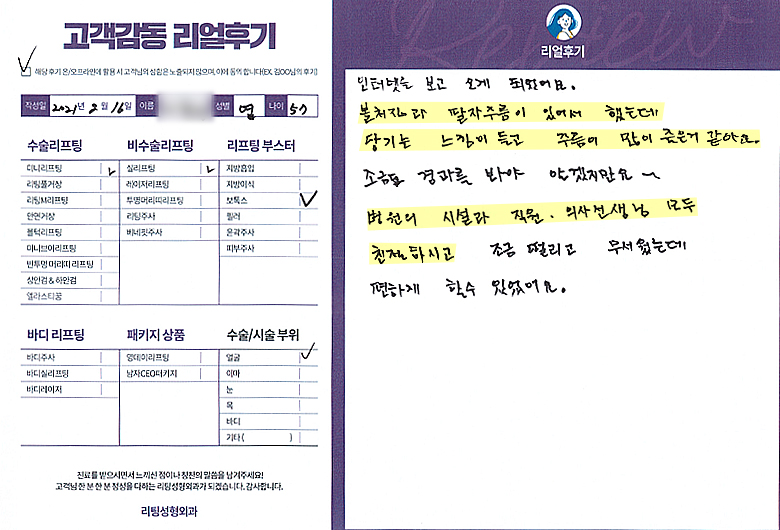 고객감동 리얼후기
해당 후기 온/오프라인에 활용 시 고객님의 성함은 노출되지 않으며, 이에 동의 합니다(EX. 김OO님의 후기)
작성일 2021년 2월 16일 이름 성별 여 나이 57
수술리프팅
미니리프팅
리팅풀거상
리팅M리프팅
안면거상
볼턱리프팅
미니브이리프팅
반투명 머리띠 리프팅
상안검 & 하안검
엘라스티꿈
비수술리프팅
실리프팅
레이저리프팅
투명머리띠리프팅
리팅주사
비너핏주사
리프팅 부스터
지방흡입
지방이식
보톡스
필러
윤곽주사
피부주사
바디 리프팅
바디주사
바디실리프팅
바디레이저
패키지 상품
영데이리프팅
남자CEO패키지
수술/시술 부위
얼굴
이마
눈
목
바디
기타 ( )
진료를 받으시면서 느끼신 점이나 칭찬의 말씀을 남겨주세요!
고객님 한 분 한 분 정성을 다하는 리팅성형외과가 되겠습니다. 감사합니다.
리팅성형외과
Review
리얼후기
인터넷을 보고 오게 되었어요.
볼처짐과 팔자주름이 있어서 했는데
당기는 느낌이 들고 주름이 많이 준은거 같아요.
조금더 경과를 봐야 알겠지만요~
병원의 시설과 직원. 의사선생님 모두
친절하시고 조금 떨리고 무서웠는데
편하게 할수 있었어요.